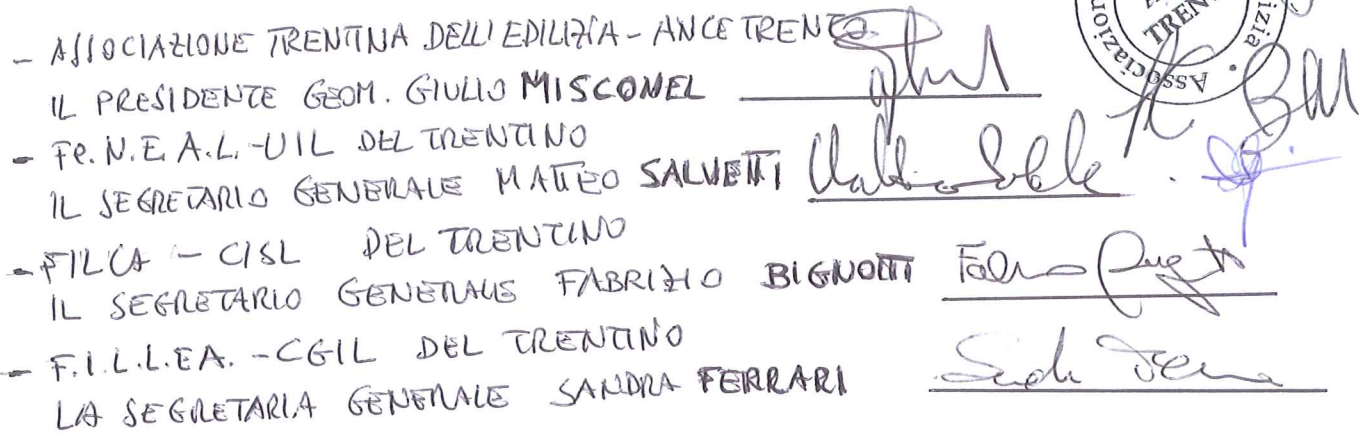 - ASSOCIAZIONE TRENTINA DELL'EDILIZIA - ANCE TRENTO
IL PRESIDENTE GEOM. GIULIO MISCONEL
- Fe.N.E.A.L.-UIL DEL TRENTINO
IL SEGRETARIO GENERALE MATTEO SALVETTI
- FILCA - CISL DEL TRENTINO
IL SEGRETARIO GENERALE FABRIZIO BIGNOTTI
- F.I.L.L.EA. -CGIL DEL TRENTINO
LA SEGRETARIA GENERALE SANDRA FERRARI
Associazion
izia